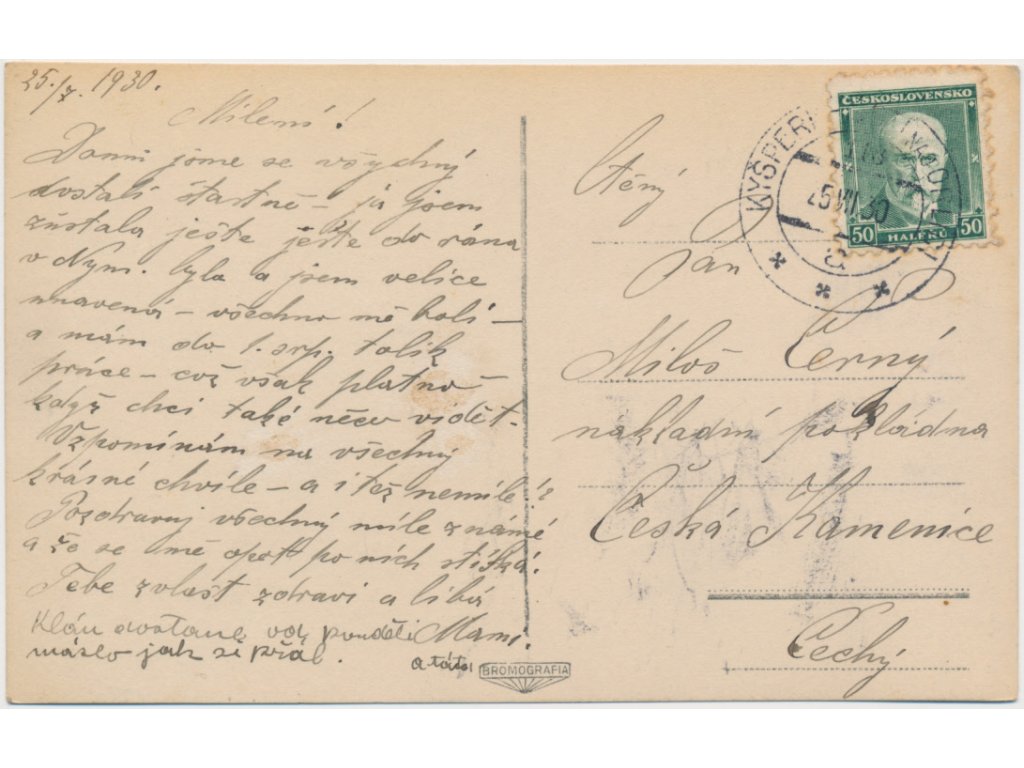 25./7. 1930.
Milení!
Domů jsme se všychny
dostali šťastně – já jsem
zůstala ješte ješte do rána
v Ným. byla a jsem velice
unavená – všechno mě bolí –
a mám do 1. srp. tolik
práce – což však platno
když chci také něco vidět.
Vzpomínám na všechny
krásné chvíle – a i též nemilé!?
Pozdravuj všechny milé známé
a že se mě opět po nich stíská!
Tebe zvlašť zdraví a líbá
Mami.
a táta
dostane od pondělí
máslo jak si přál.
BROMOGRAFIA
ČESKOSLOVENSKO
50 HALÉŘŮ 50
KYŠPERK
25 VII 30
Ctěný
pan
Miloš Černý
nákladní pokladna
Česká Kamenice
Čechy